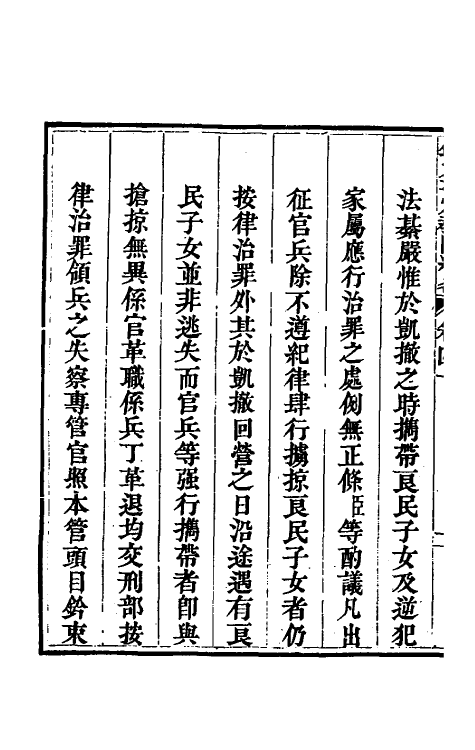 法綦嚴惟於凱撤之時攜帶良民子女及逆犯
家屬應行治罪之處例無正條臣等酌議凡出
征官兵除不遵紀律肆行擄掠良民子女者仍
按律治罪外其於凱撤回營之日沿途遇有良
民子女並非逃失而官兵等强行攜帶者卽與
搶掠無異係官革職係兵丁革退均交刑部按
律治罪領兵之失察專管官照本管頭目鈐束